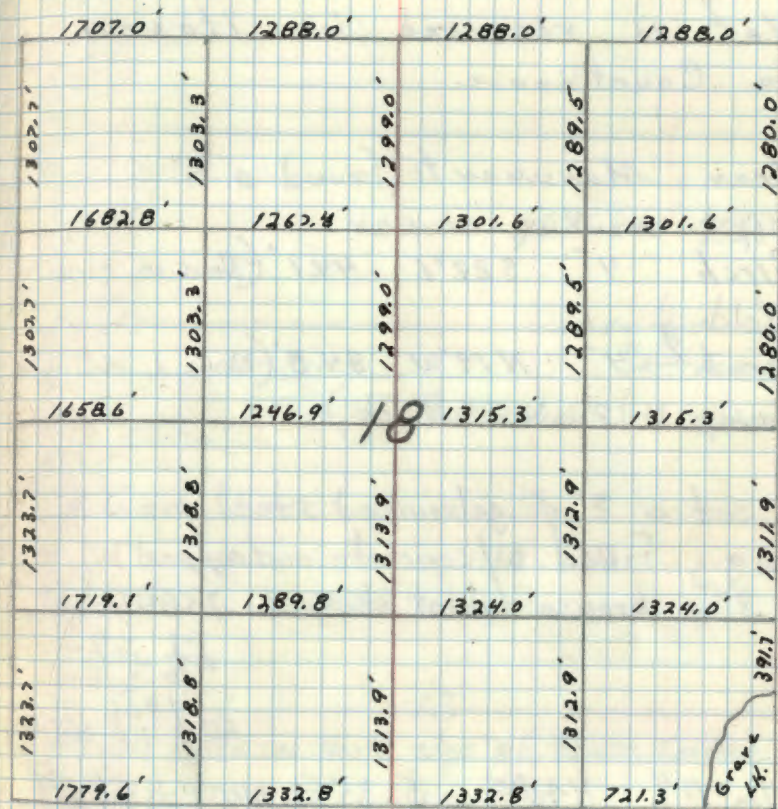 1707.0' 1288.0' 1288.0' 1288.0'
1307.7' 1303.3' 1299.0' 1289.5' 1280.0'
1682.8' 1267.4' 1301.6' 1301.6'
1307.7' 1303.3' 1299.0' 1289.5' 1280.0'
1658.6' 1246.9' 18 1315.3' 1315.3'
1323.7' 1318.8' 1313.9' 1312.9' 1311.9'
1719.1' 1289.8' 1324.0' 1324.0'
1323.7' 1318.8' 1313.9' 1312.9' 391.7'
Grave
LK.
1779.6' 1332.8' 1332.8' 721.3'